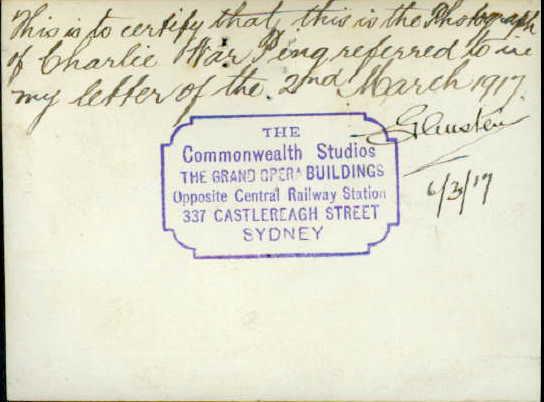 This is to certify that this is the Photograph
of Charlie War Ping referred to in
my letter of the 2nd March 1917.
6/3/17
THE
Commonwealth Studios
THE GRAND OPERA BUILDINGS
Opposite Central Railway Station
337 CASTLEREAGH STREET
SYDNEY